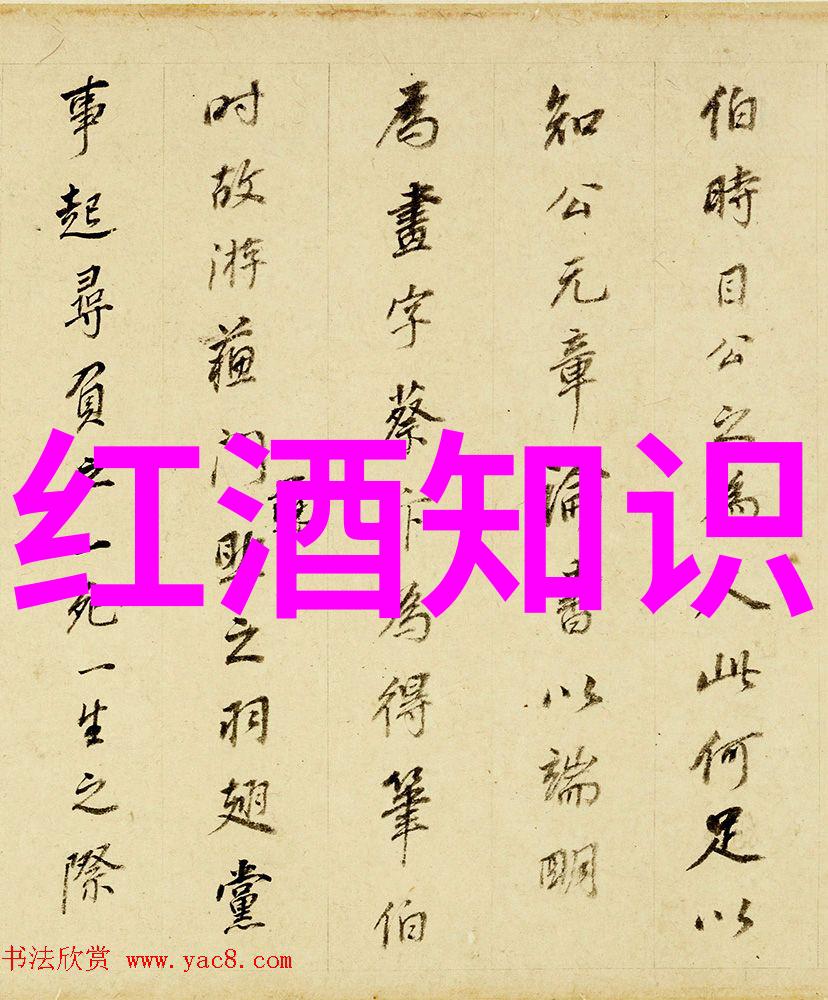 伯時目公之為人此何足以
知公元章論書以端明
為畫字蔡卞為得筆伯
时故游蘓門之羽翅黨
事起尋負之一死一生之際
红酒知识
书法欣赏 www.yac8.com